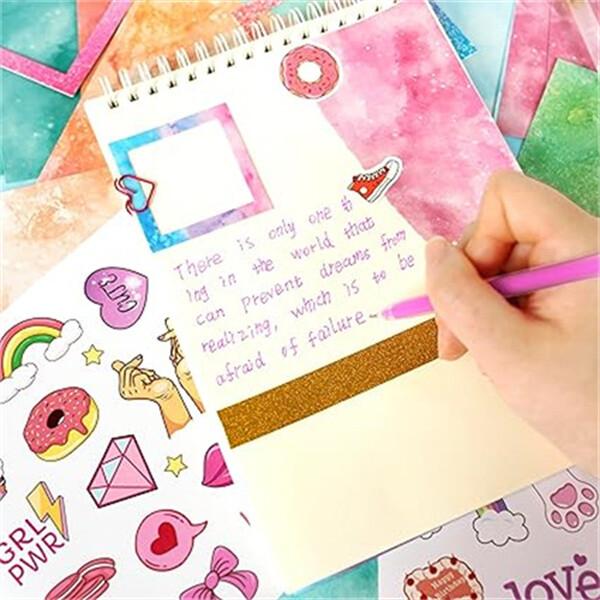 There is only one th
ing in the world that
can prevent dreams from
realizing, which is to be
afraid of failure
CUTE
GRL
PWR
Happy
Birthday
love